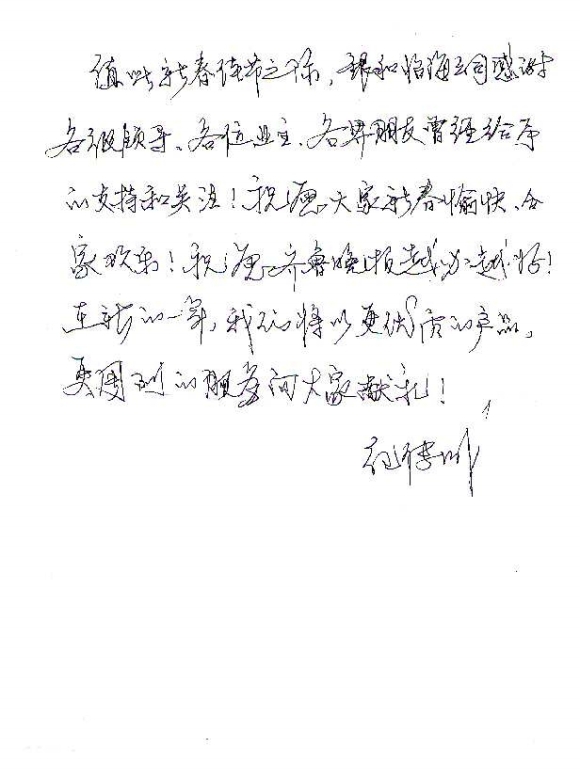 值此新春佳节之际，银和怡海公司感谢
各级领导、各位业主、各界朋友曾经给予
的支持和关注！祝愿大家新春愉快、合
家欢乐！祝愿齐鲁晚报越办越好！
在新的一年，我们将以更优质的产品，
更周到的服务向大家献礼！